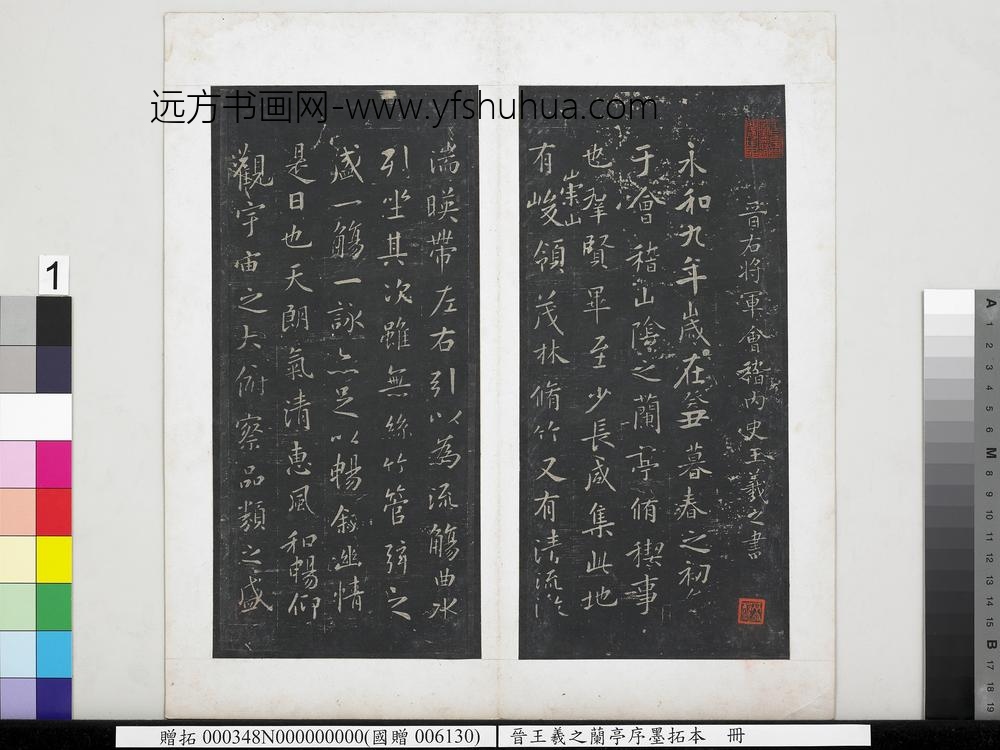 远方书画网-www.yfshuhua.com
晉右将軍會稽内史王羲之書
永和九年歲在癸丑暮春之初
于會稽山陰之蘭亭脩禊事
也羣賢畢至少長咸集此地
有崇山峻領茂林脩竹又有清流激
湍暎帶左右引以為流觴曲水
列坐其次雖無絲竹管弦之
盛一觴一詠亦足以暢敘幽情
是日也天朗氣清惠風和暢仰
觀宇宙之大俯察品類之盛
1
A 1 2 3 4 5 6 M 8 9 10 11 12 13 14 15 B 17 18 19
贈拓 000348N000000000(國贈 006130)
晉王羲之蘭亭序墨拓本 冊